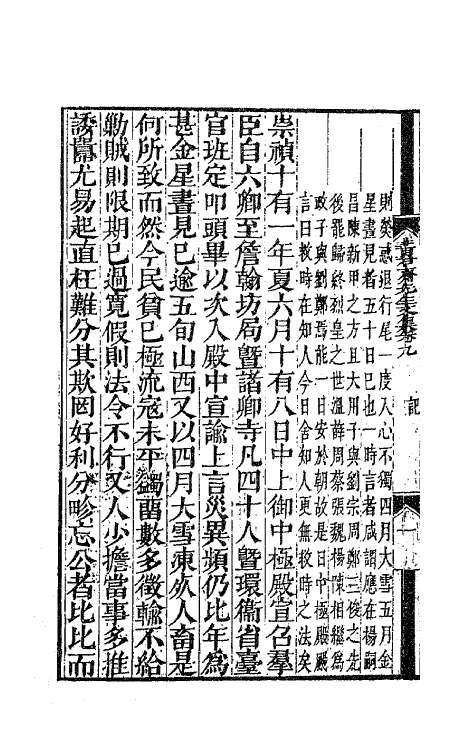 黃漳浦先生文集卷九 記
則熒惑退行尾一度入心不獨四月大雪五月金
星晝見者五十日已也一時言者咸謂應在楊嗣
昌陳新甲之方且大用子與劉宗周鄭三俊之先
後罷歸終烈皇之世溫薛周蔡張魏楊陳相繼為
政子與劉鄭焉能一日安於朝故是日中極殿嚴
言曰救時在知人今日舍知人更無救時之法矣
崇禎十有一年夏六月十有八日中上御中極殿宣召羣
臣自六卿至詹翰坊局暨諸卿寺凡四十人暨環衞省臺
官班定叩頭畢以次入殿中宣諭上言災異頻仍比年為
甚金星晝見已逾五旬山西又以四月大雪凍死人畜是
何所致而然今民貧已極流寇未平蠲畱數多徵輸不給
勦賊則限期已過寬假則法令不行又人少擔當事多推
諉釁尤易起直枉難分其欺罔好利分畛忘公者比比而